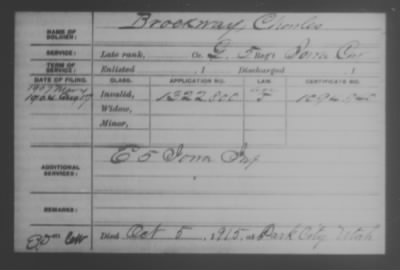 NAME OF SOLDIER: Brockway, Charles
SERVICE: Late rank, Co. G, 5 Reg't Iowa Cav
TERM OF SERVICE: Enlisted , 1 Discharged , 1
DATE OF FILING. CLASS. APPLICATION NO. LAW. CERTIFICATE NO.
1907 Invalid, 1322
Widow,
Minor,
ADDITIONAL SERVICES: E 5 Iowa Inf
REMARKS:
Died Oct 5, 1915, at Park City Utah